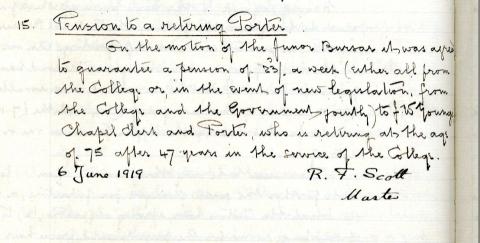 15. Pension to a retiring Porter
On the motion of the Junior Bursar it was agreed
to guarantee a pension of 23/. a week (either all from
the College or, in the event of new legislation, from
the College and the Government jointly) to J. Wm Young
Chapel Clerk and Porter, who is retiring at the age
of 75 after 47 years in the service of the College.
6 June 1919 R. F. Scott
Master